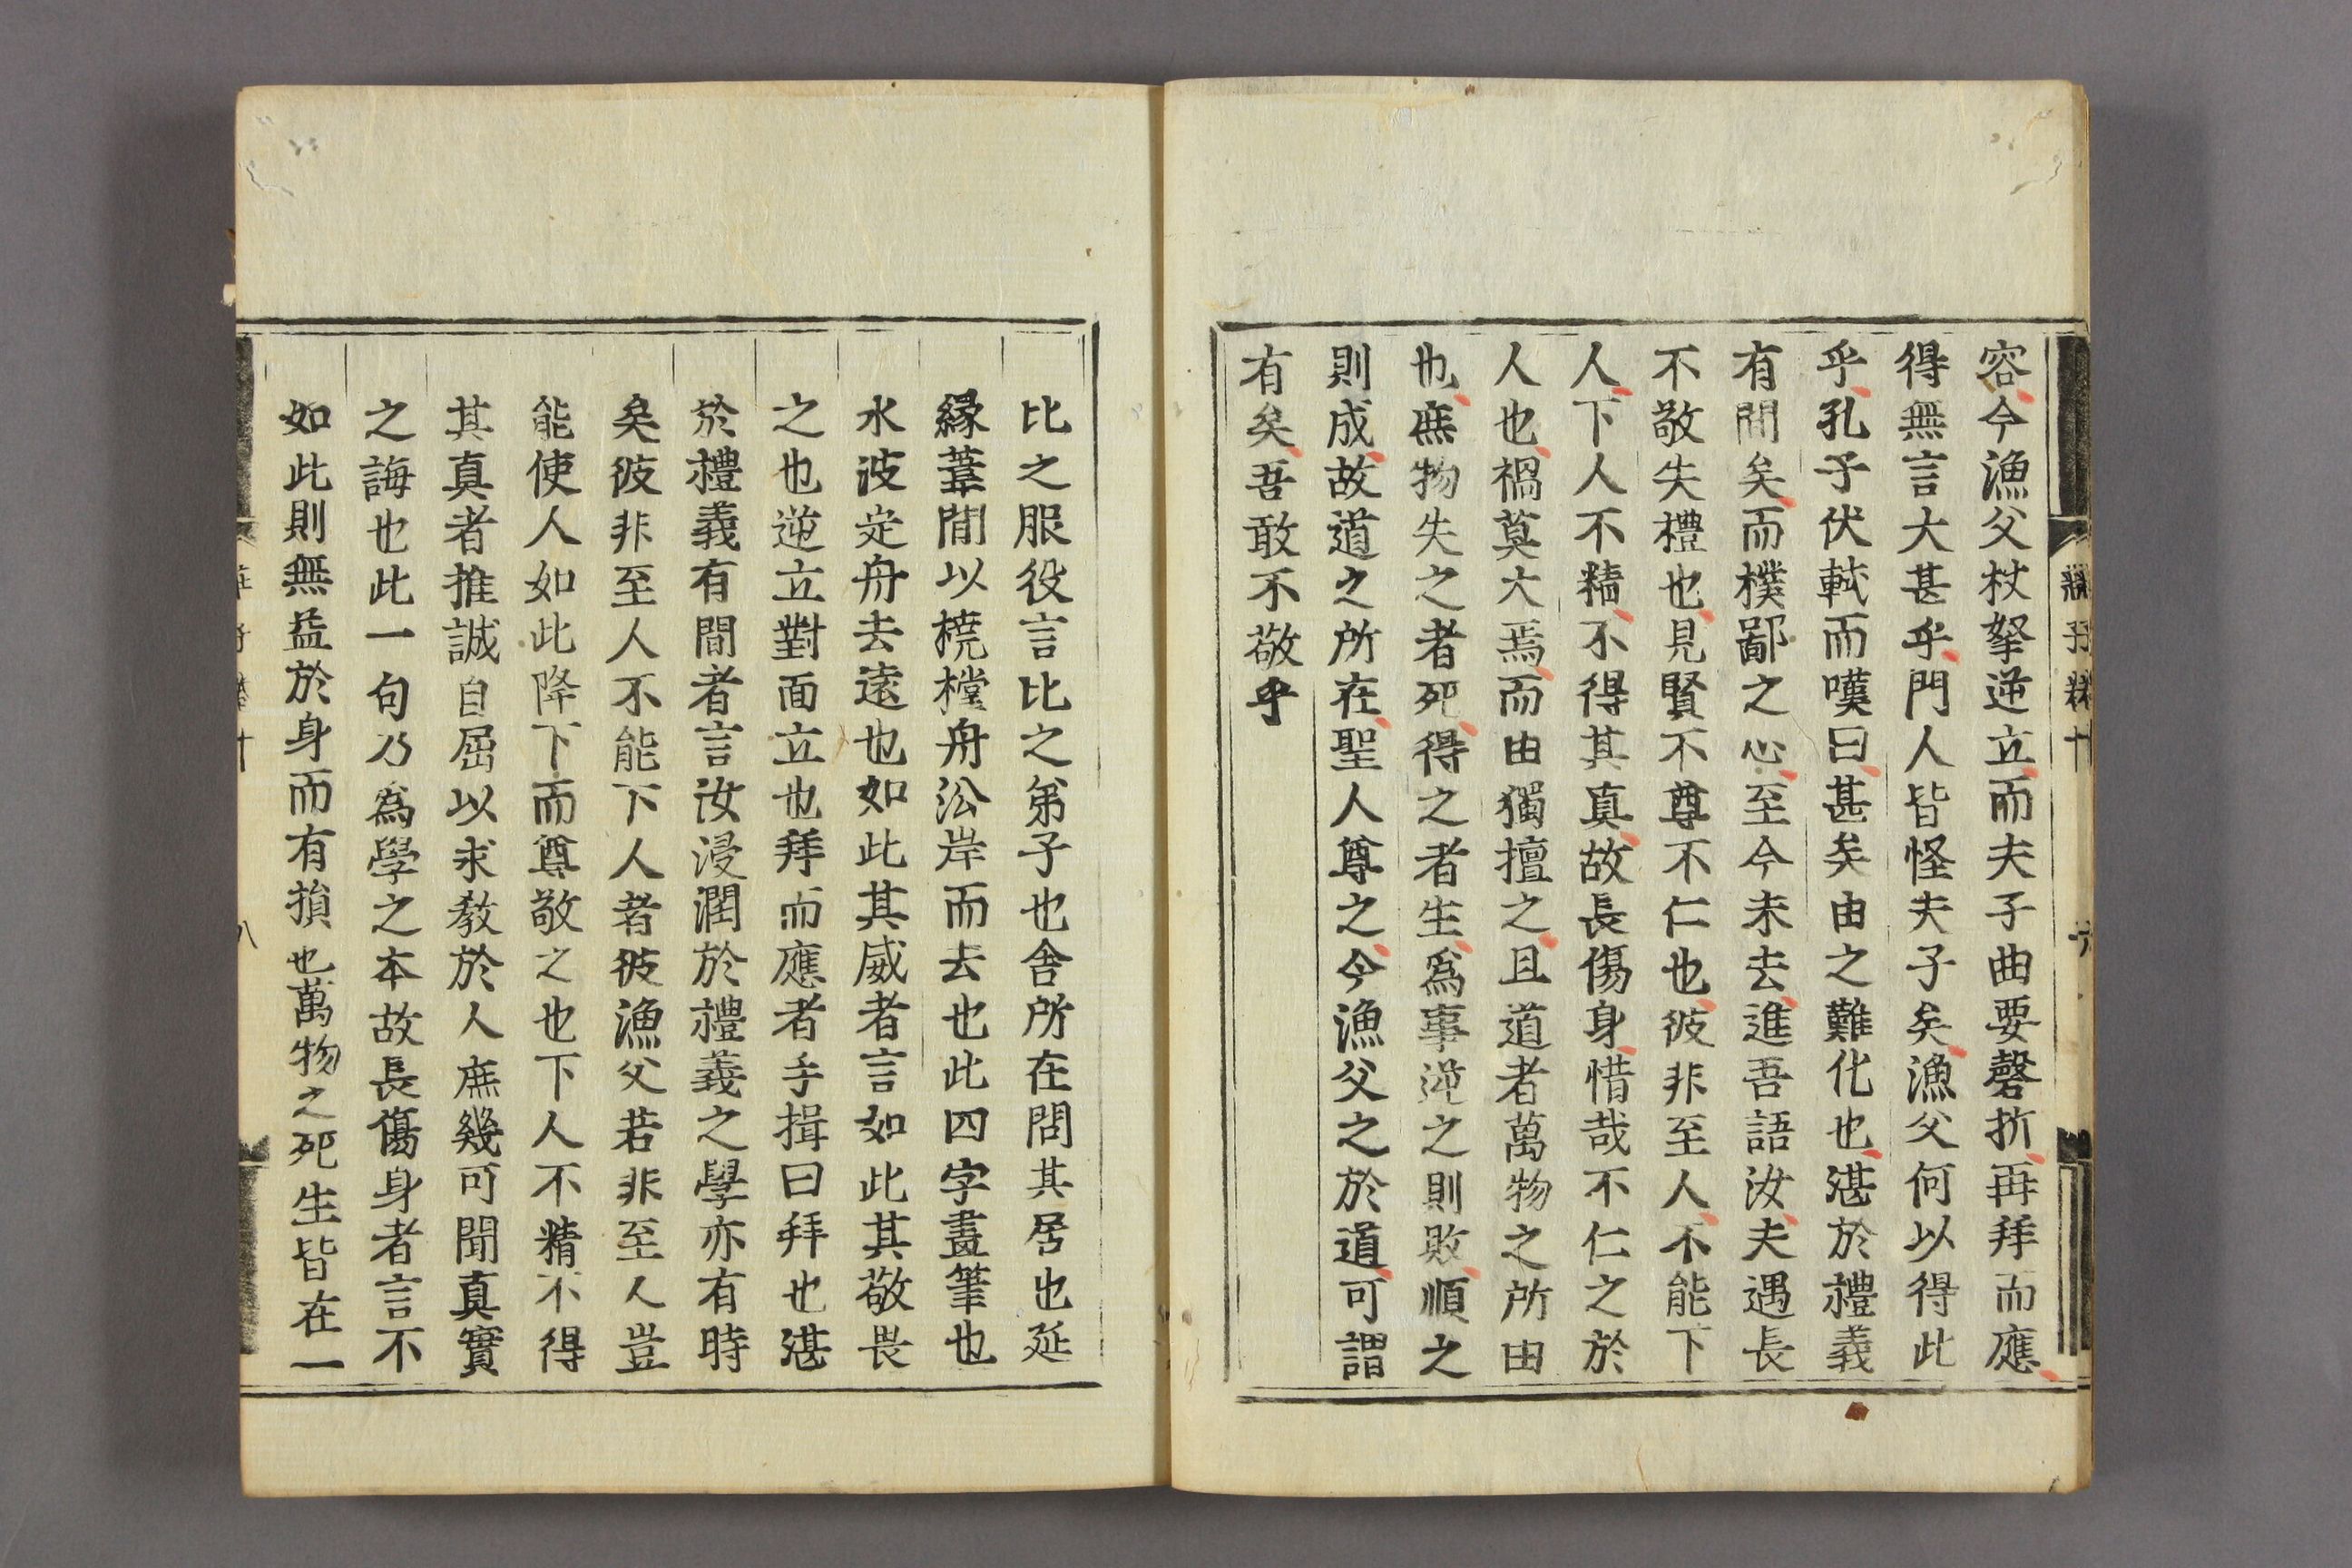 容今漁父杖拏逆立而夫子曲要磬折再拜而應
得無言大甚乎門人皆怪夫子矣漁父何以得此
乎孔子伏軾而嘆曰甚矣由之難化也湛於禮義
有間矣而樸鄙之心至今未去進吾語汝夫遇長
不敬失禮也見賢不尊不仁也彼非至人不能下
人下人不精不得其真故長傷身惜哉不仁之於
人也禍莫大焉而由獨擅之且道者萬物之所由
也庶物失之者死得之者生爲事逆之則敗順之
則成故道之所在聖人尊之今漁父之於道可謂
有矣吾敢不敬乎
比之服役言比之弟子也舎所在問其居也延
緣葦間以橈樘舟㳂岸而去也此四字畫筆也
水波定舟去遠也如此其威者言如此其敬畏
之也逆立對面立也拜而應者手揖曰拜也湛
於禮義有間者言汝浸潤於禮義之學亦有時
矣彼非至人不能下人者彼漁父若非至人豈
能使人如此降下而尊敬之也下人不精不得
其真者推誠自屈以求教於人庶幾可聞真實
之誨也此一句乃爲學之本故長傷身者言不
如此則無益於身而有損也萬物之死生皆在一